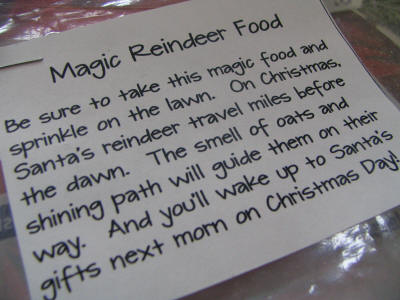 Magic Reindeer Food
Be sure to take this magic food and
sprinkle on the lawn. On Christmas,
Santa's reindeer travel miles before
the dawn. The smell of oats and
shining path will guide them on their
way. And you'll wake up to Santa's
gifts next morn on Christmas Day!